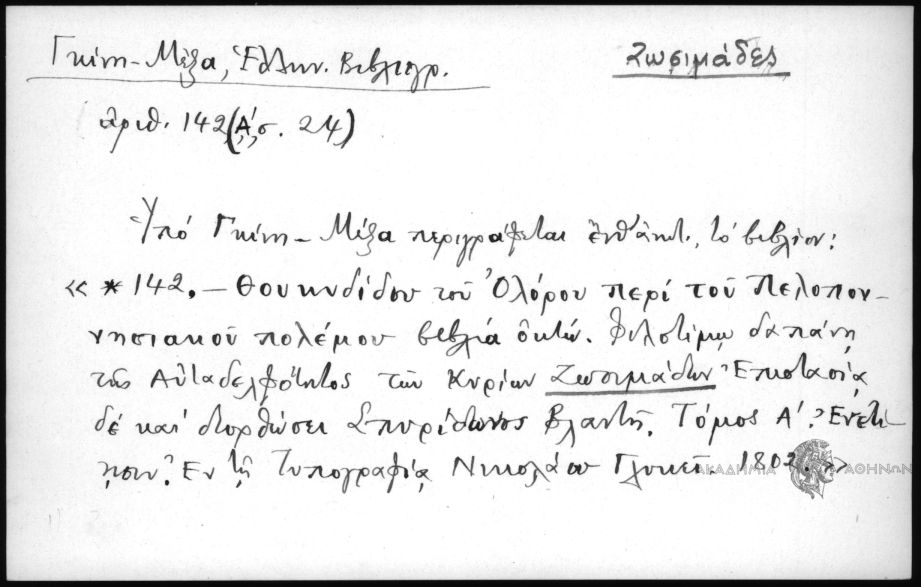 Γκίνη – Μέξα, Ἑλλην. Βιβλιογρ.
Ζωσιμάδες
ἀριθ. 142 (Α´, σ. 24)
Ὑπό Γκίνη – Μέξα περιγράφεται ἐνθ' ἀνωτ., τό βιβλίον:
« * 142. – Θουκυδίδου τοῦ Ὀλόρου περί τοῦ Πελοπον-
νησιακοῦ πολέμου βιβλία ὀκτώ. Φιλοτίμῳ δαπάνῃ
τῆς Αὐταδελφότητος τῶν Κυρίων Ζωσιμάδων Ἐπιστασίᾳ
δέ καί διορθώσει Σπυρίδωνος Βλαντῆ. Τόμος Α´. Ἐνετί-
ῃσιν. Ἐν τῇ Τυπογραφίᾳ Νικολάου Γλυκεῖ 180
ΑΚΑΔΗΜΙΑ ΑΘΗΝΩΝ